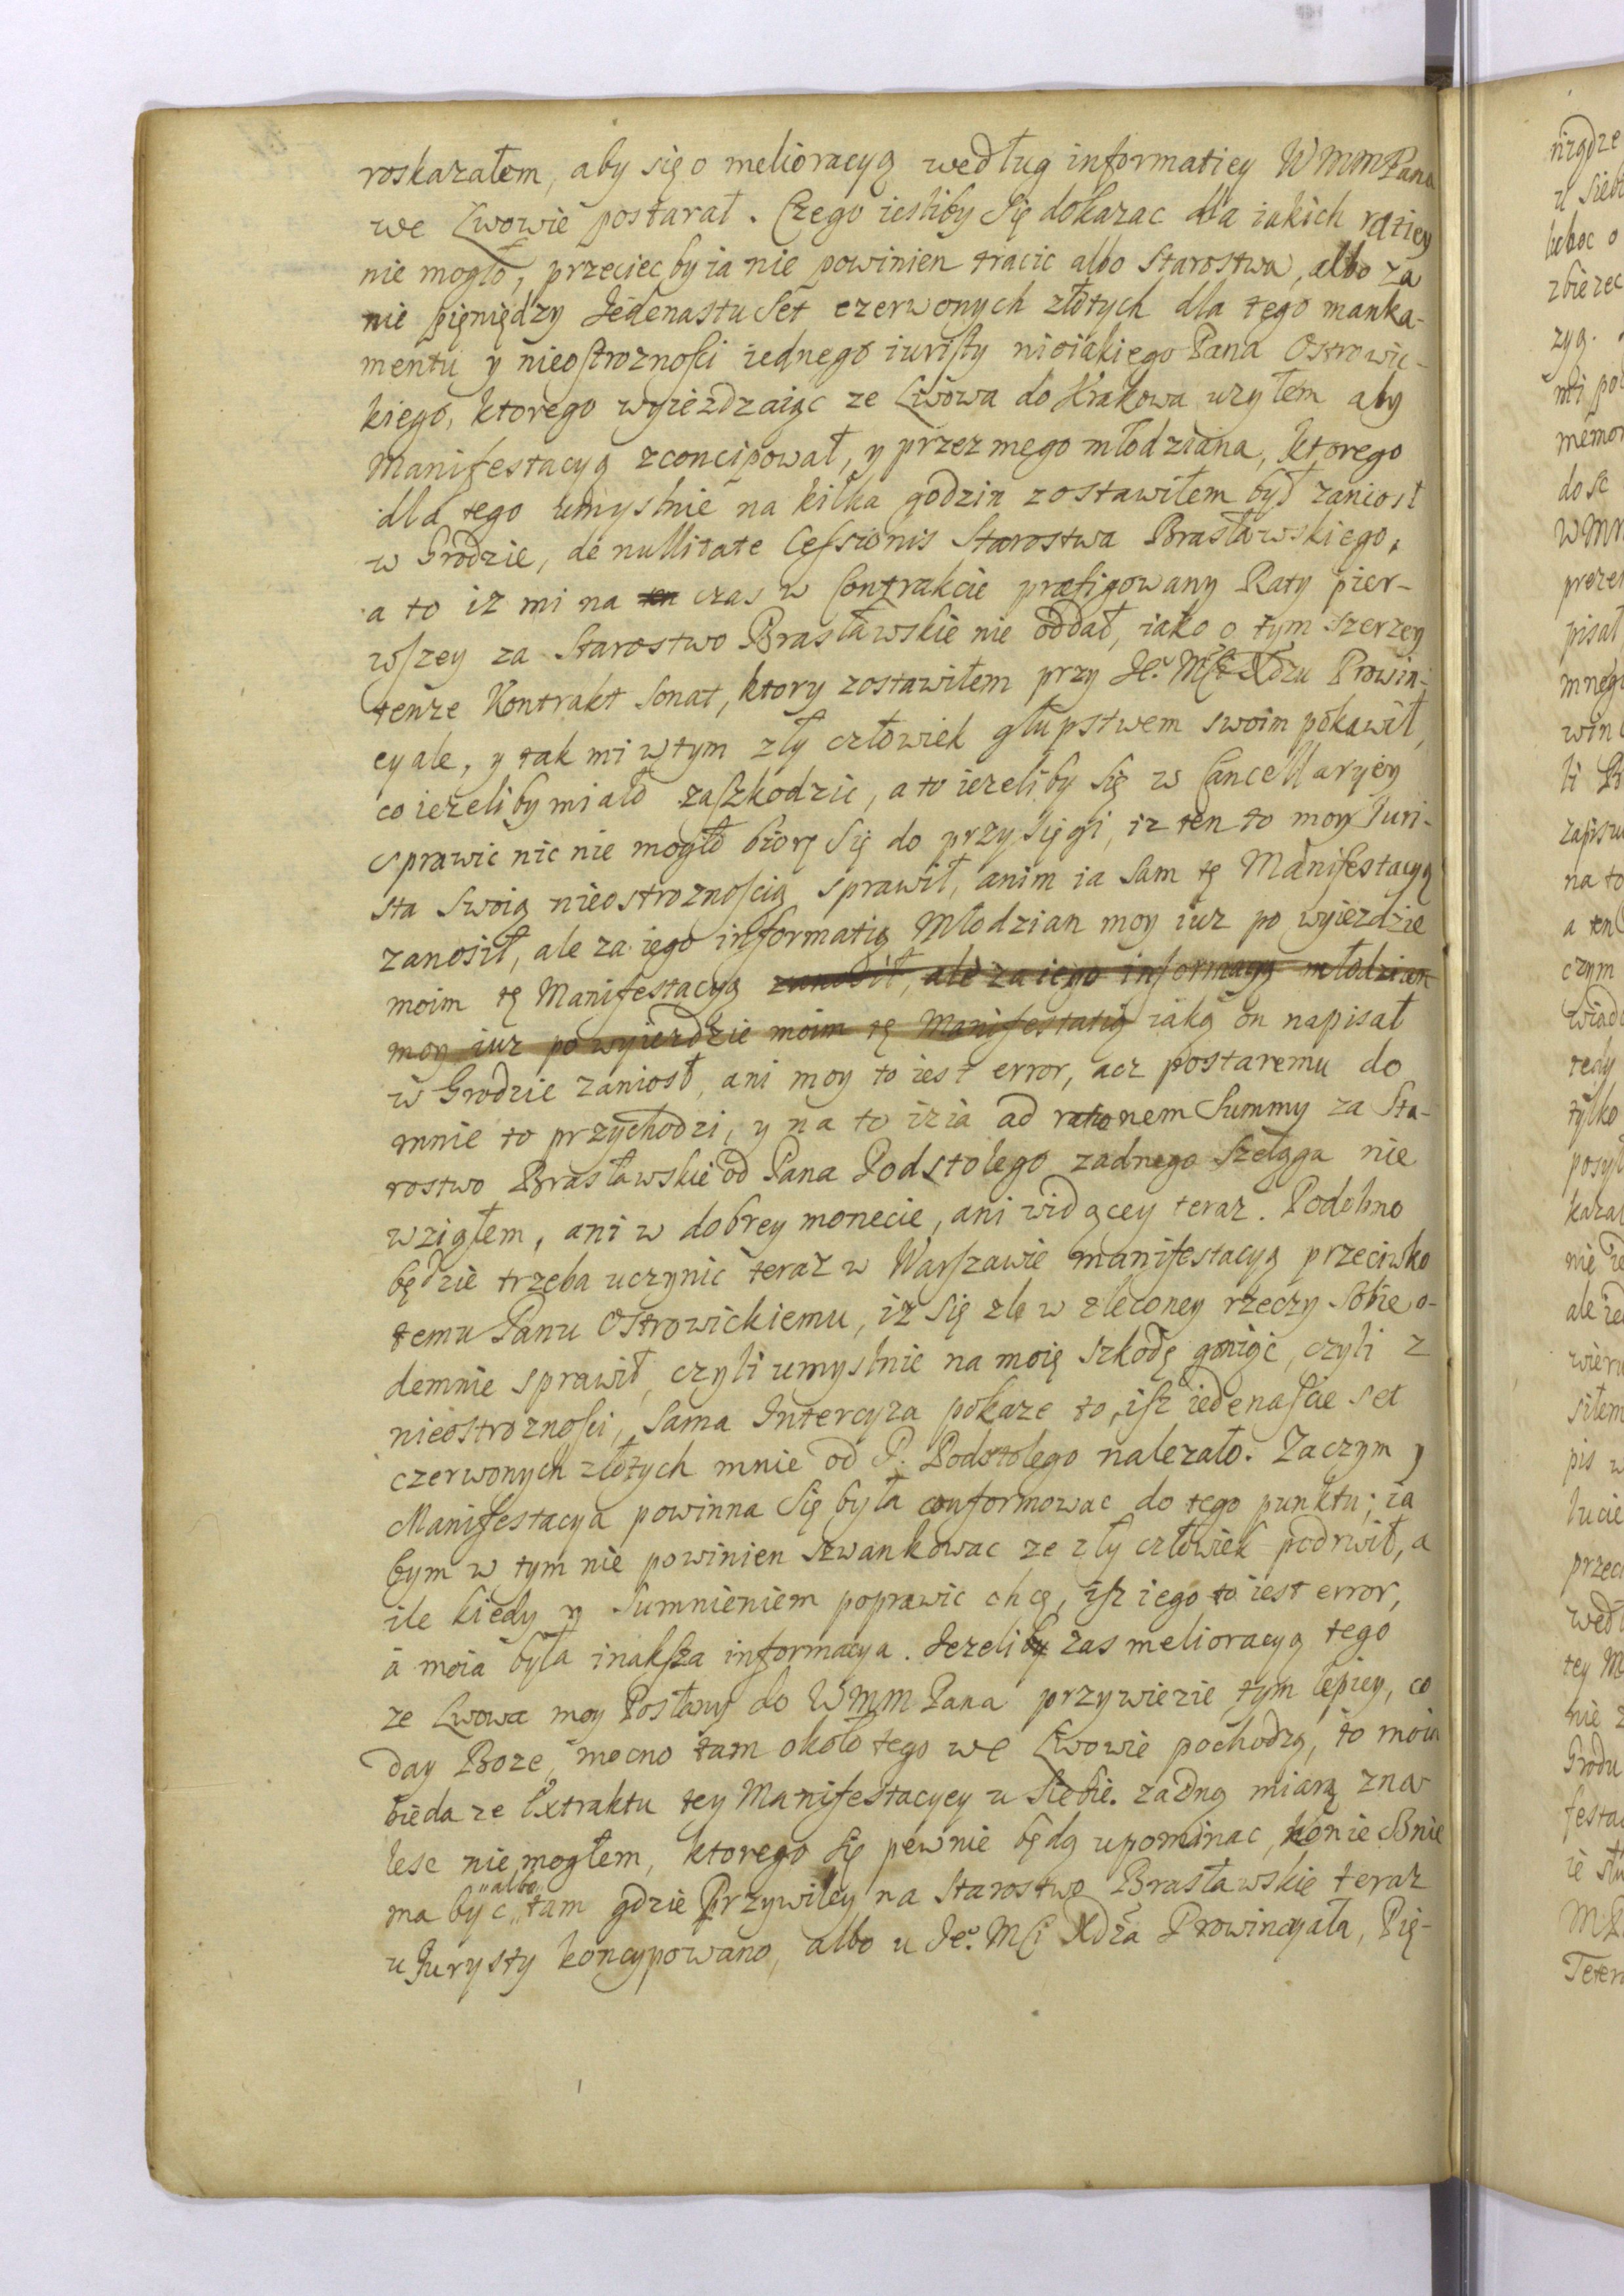 roskazałem, aby się o melioracyą według informatiey WMMPana
we Lwowie postarał. Czego iesliby się dokazac dla iakich ratiey
nie mogło, przeciec by ia nie powinien tracic albo Starostwa, albo za
nie pięniędzy Jedenastu Set czerwonych złotych dla tego manka-
mentu y nieostroznosci iednego iuristy nieiakiego Pana Ostrowic-
kiego, ktorego wyiezdzaiąc ze Lwowa do Krakowa uzyłem aby
Manifestacyą zconcipował, y przez mego młodziana, ktorego
dla tego umyslnie na kilka godzin zostawiłem był zaniosł
w Grodzie, de nullitate Cessionis Starostwa Brasławskiego,
a to iz mi na ten czas w Contrakcie præfigowany Raty pier-
wszey za Starostwo Brasławskie nie oddał, iako o tym szerzey
tenze Kontrakt sonat, ktory zostawiłem przy Je.º Mści Xdzu Prowin-
cyale, y tak mi w tym zły człowiek głupstwem swoim pokawił,
co iezeliby miało zaszkodzic, a to iezeliby się w Cancellaryey
sprawic nic nie mogło biorę się do przysięgi, iz ten to moy Iuri-
sta swoią nieostroznoscią sprawił, anim ia sam tę Manifestacyą
zanosił, ale za iego informatią Młodzian moy iuz po wyiezdzie
moim tę Manifestacyą zanosił, ale za iego informacyą młodzian
moy iuz po wyiezdzie moim tę Manifestatią iaką on napisał
w Grodzie zaniosł, ani moy to iest error, acz postaremu do
mnie to przychodzi, y na to iz ia ad rationem Summy za Sta-
rostwo Brasławskie od Pana Podstolego zadnego szeląga nie
wziąłem, ani w dobrey monecie, ani widącey teraz. Podobno
będzie trzeba uczynic teraz w Warszawie manifestacyą przeciwko
temu Panu Ostrowickiemu, iz się zle w zleconey rzeczy sobie o-
demnie sprawił, czyli umyslnie na moię szkodę goniąc, czyli z
nieostroznosci, sama Intercyza pokaze to, isz iedenascie set
czerwonych złotych mnie od P. Podstolego nalezało. Zaczym y
Manifestacya powinna się była conformowac do tego punktu; ia
bym w tym nie powinien szwankowac ze zły człowiek podrwił, a
ile kiedy y Sumnieniem poprawic chcę, isz iego to iest error,
a moia była inaksza informacya. Jezeliby zas melioracyą tego
ze Lwowa moy Posłany do WMM Pana przywiezie tym lepiey, co
day Boze, mocno tam około tego we Lwowie pochodzą, to moia
bieda ze Extraktu tey Manifestacyey u siebie zadną miarą zna-
lesc nie mogłem, ktorego się pewnie będą upominac, koniecznie
ma byc „albo„ tam gdzie Przywiley na Starostwo Brasławskie teraz
u Jurysty koncypowano, albo u Je.º Mci Xdza Prowincyała, Pię-